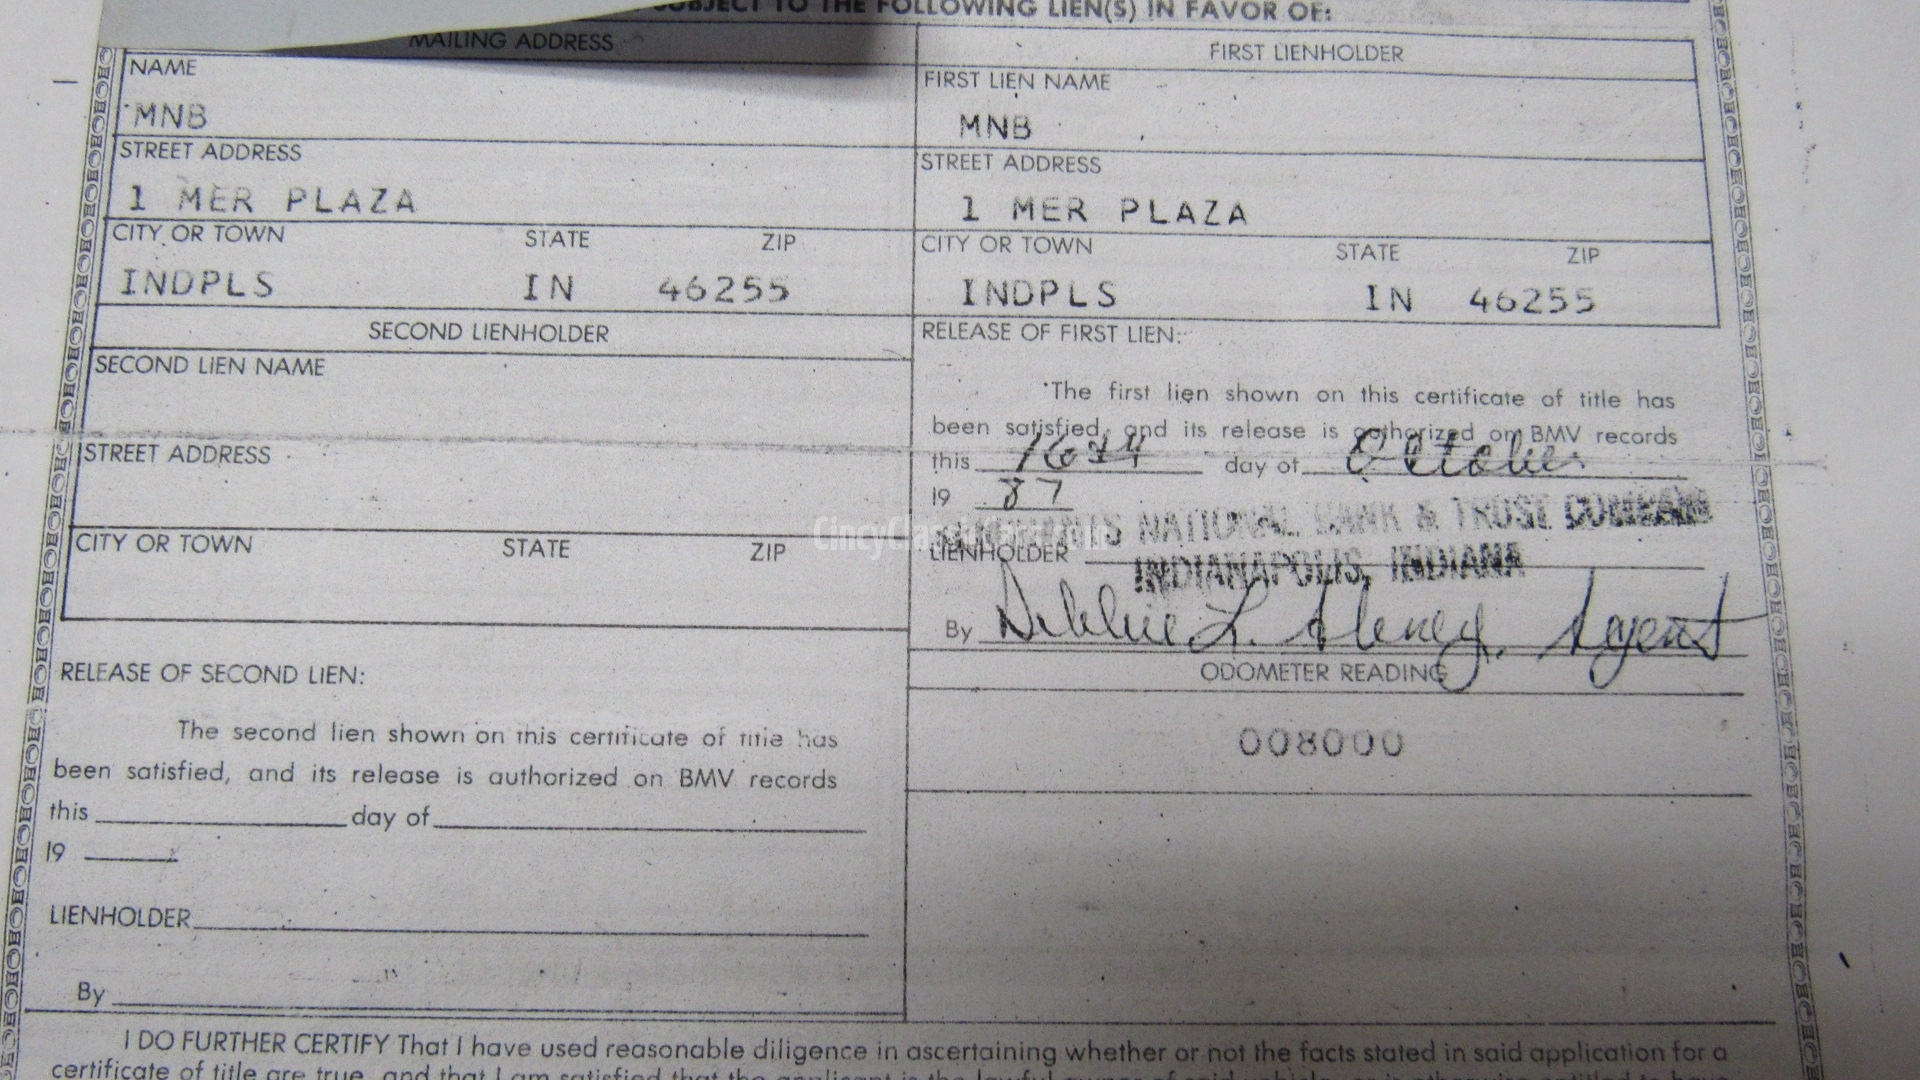 SUBJECT TO THE FOLLOWING LIEN(S) IN FAVOR OF:
MAILING ADDRESS
NAME
MNB
STREET ADDRESS
1 MER PLAZA
CITY OR TOWN STATE ZIP
INDPLS IN 46255
FIRST LIENHOLDER
FIRST LIEN NAME
MNB
STREET ADDRESS
1 MER PLAZA
CITY OR TOWN STATE ZIP
INDPLS IN 46255
SECOND LIENHOLDER
SECOND LIEN NAME
STREET ADDRESS
CITY OR TOWN STATE ZIP
RELEASE OF SECOND LIEN:
The second lien shown on this certificate of title has
been satisfied, and its release is authorized on BMV records
this day of
19
LIENHOLDER
By
RELEASE OF FIRST LIEN:
The first lien shown on this certificate of title has
been satisfied, and its release is authorized on BMV records
this day of October
19 87
NATIONAL BANK & TRUST COMPANY
LIENHOLDER
INDIANAPOLIS, INDIANA
By Debbie L. Agent
ODOMETER READING
008000
I DO FURTHER CERTIFY That I have used reasonable diligence in ascertaining whether or not the facts stated in said application for a
certificate of title are true, and that I am satisfied that the applicant is the lawful owner of said vehicle, or is otherwise entitled to have